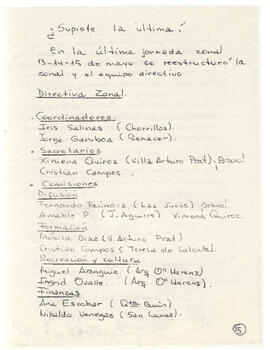 ¿Supiste la última!
En la última jornada zonal
13-14-15 de mayo se reestructuró la
zonal y el equipo directivo
Directiva Zonal.
. Coordinadores.
Iris Salinas (Chorrillos).
Jorge Gamboa (Renacer).
. Secretarios
Ximena Quiroz (Villa Arturo Prat), Bravo!
Cristian Campos
. Comisiones
Difusión
Fernando Faúndez (Las Javas) Bravo!
Amable P. (J. Aguirre) Ximena Quiroz.
Formación
Mónica Díaz (V. Arturo Prat).
Cristian Campos (Teresa de Calcuta).
Recreación y cultura.
Miguel Aranguiz (Arq Oº Herens)
Ingrid Ovalle. (Arq Oº Herens).
Finanzas
Ana Escobar (Qta Buin)
Nibaldo Venegas (San Lucas).